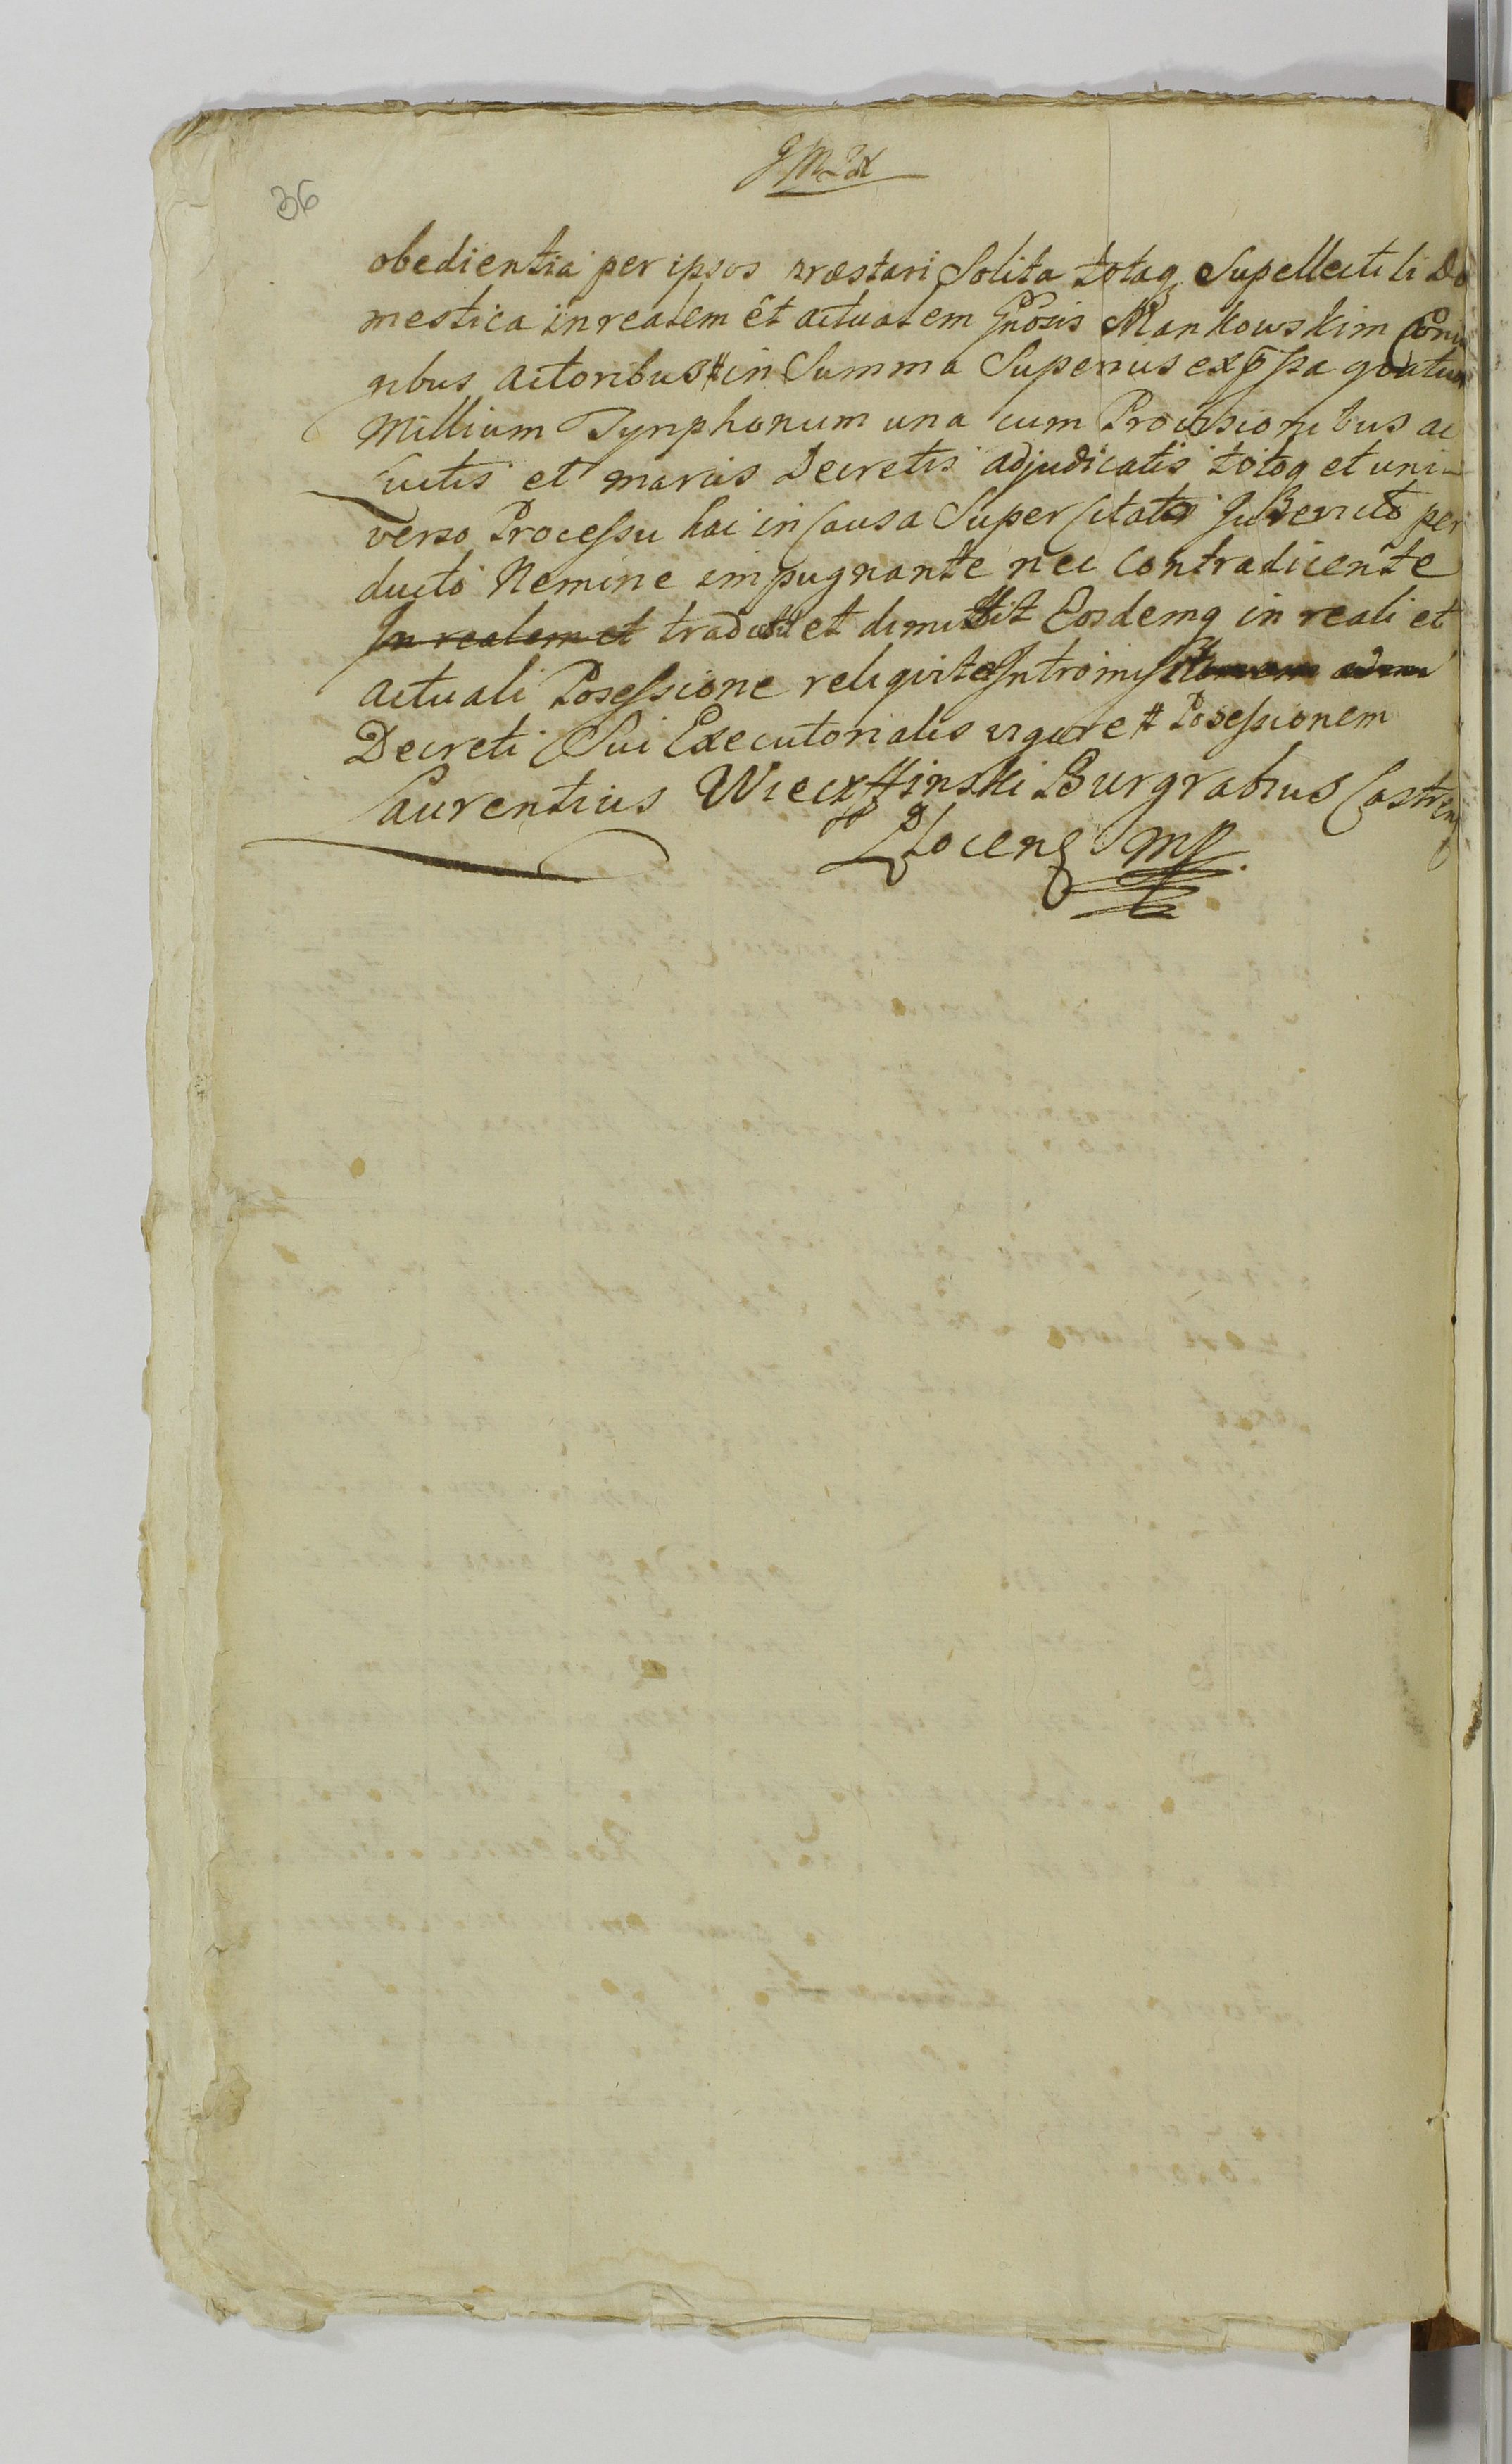 36
obedientia per ipsos præstari Solita totaq Supellectili Do
mestica in realem et actualem Gnosis Mankowskim Coniu
gibus actoribus # in Summa Superius expssa quatuor
Millium Tynphonum una cum Provisionibus ac
Luctis et marcis Decretis adjudicatis totoq et uni-
verso Processu hac in Causa Super Citato Jurevicto per
ducto Nemine impugnante nec Contradicente
In realem et tradidit et dimittit Eosdemq in reali et
actuali Posessione reliquit Intromiss
Decreti Sui Executorialis vigore # Posessionem
Laurentius Wieczffinski Burgrabius Castren
Plocens mp